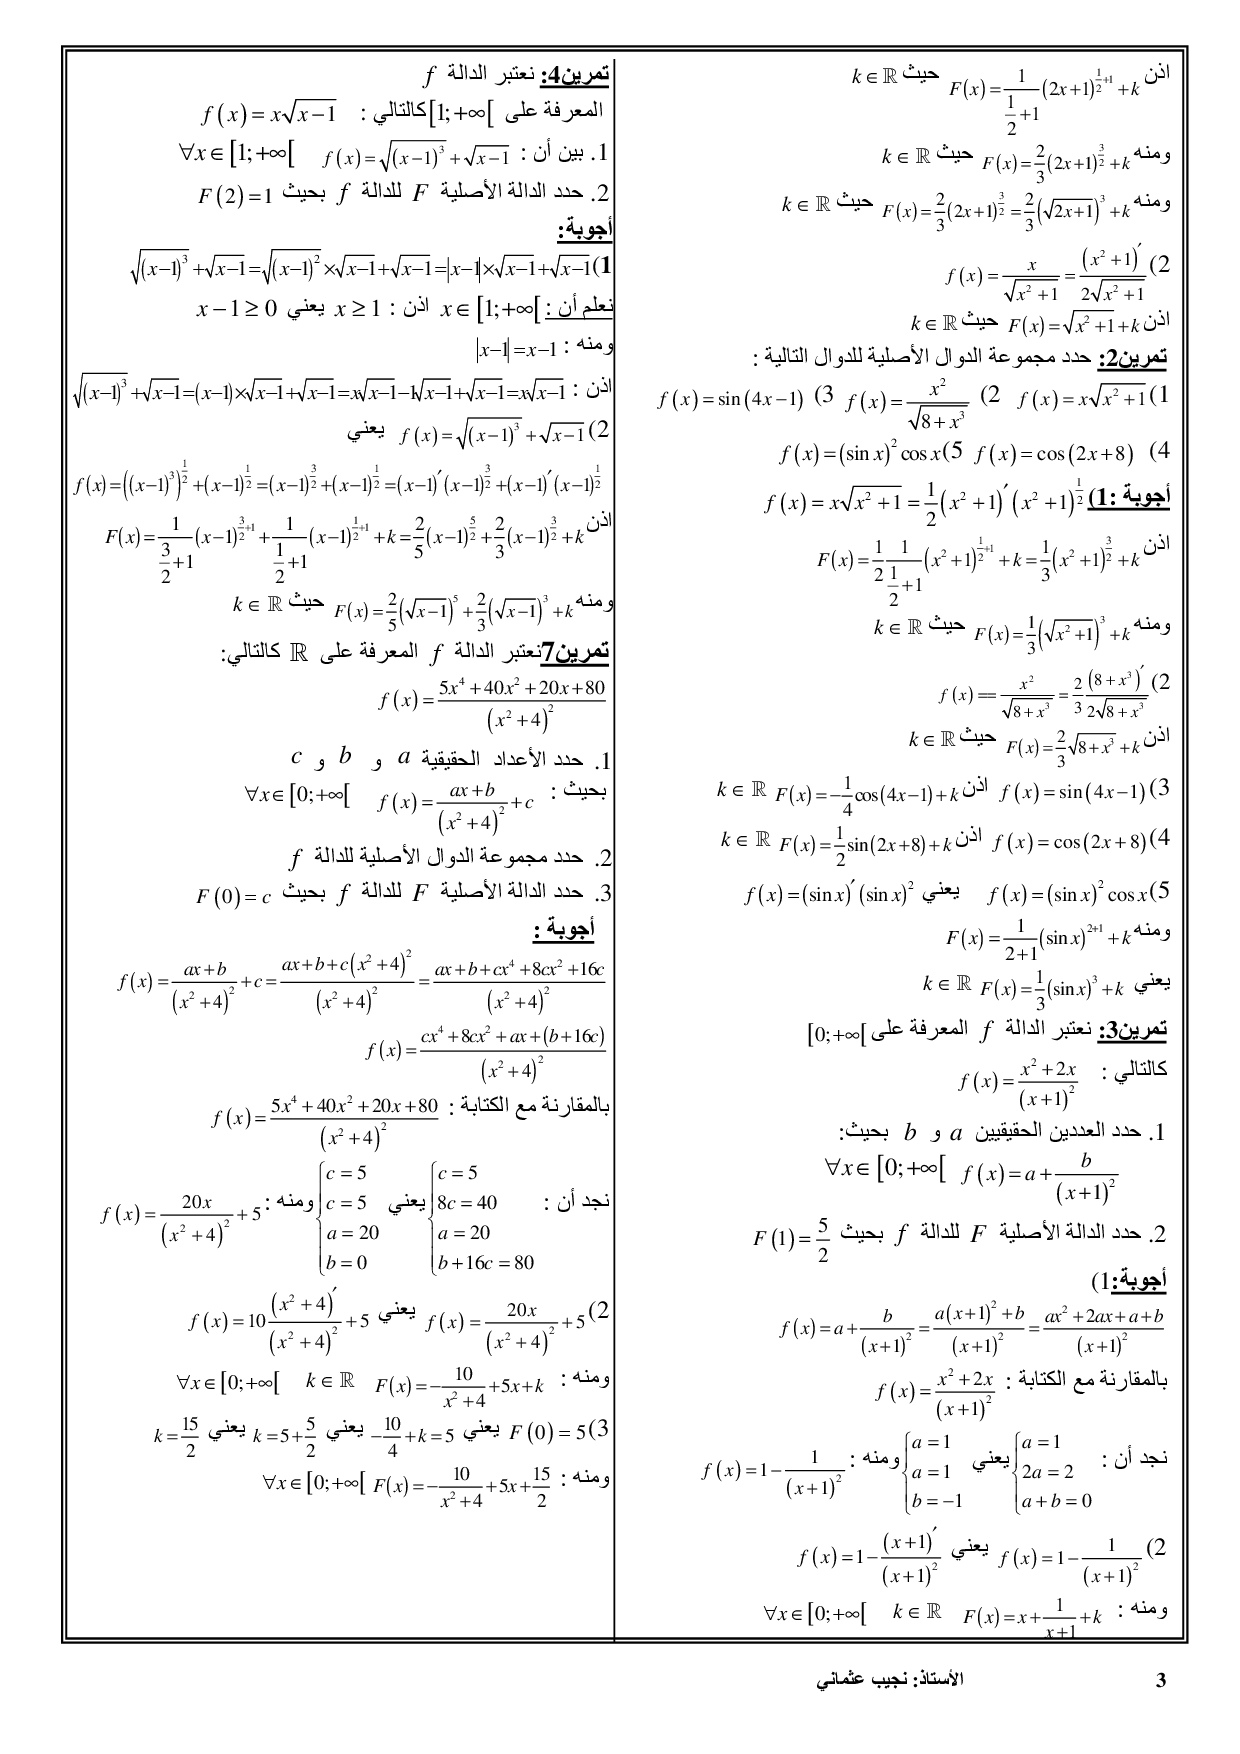 اذن F(x) = 1/(1/2+1) (2x+1)^(1/2+1) + k حيث k∈ℝ
ومنه F(x) = 2/3 (2x+1)^(3/2) + k حيث k∈ℝ
ومنه F(x) = 2/3 (2x+1)^(3/2) = 2/3 (√(2x+1))^3 + k حيث k∈ℝ
2) f(x) = x/√(x²+1) = (x²+1)′/(2√(x²+1))
اذن F(x) = √(x²+1) + k حيث k∈ℝ
تمرين2: حدد مجموعة الدوال الأصلية للدوال التالية :
1) f(x) = x√(x²+1) 2) f(x) = x²/√(8+x³) 3) f(x) = sin(4x−1)
4) f(x) = cos(2x+8) 5) f(x) = (sin x)² cos x
أجوبة :1) f(x) = x√(x²+1) = 1/2 (x²+1)′ (x²+1)^(1/2)
اذن F(x) = 1/2 1/(1/2+1) (x²+1)^(1/2+1) + k = 1/3 (x²+1)^(3/2) + k
ومنه F(x) = 1/3 (√(x²+1))^3 + k حيث k∈ℝ
2) f(x) == x²/√(8+x³) = 2/3 (8+x³)′/(2√(8+x³))
اذن F(x) = 2/3 √(8+x³) + k حيث k∈ℝ
3) f(x) = sin(4x−1) اذن F(x) = −1/4 cos(4x−1) + k k∈ℝ
4) f(x) = cos(2x+8) اذن F(x) = 1/2 sin(2x+8) + k k∈ℝ
5) f(x) = (sin x)² cos x يعني f(x) = (sin x)′ (sin x)²
ومنه F(x) = 1/(2+1) (sin x)^(2+1) + k
يعني F(x) = 1/3 (sin x)³ + k k∈ℝ
تمرين3: نعتبر الدالة f المعرفة على [0;+∞[
كالتالي : f(x) = (x²+2x)/(x+1)²
1. حدد العددين الحقيقيين a و b بحيث:
f(x) = a + b/(x+1)² ∀x∈[0;+∞[
2. حدد الدالة الأصلية F للدالة f بحيث F(1) = 5/2
أجوبة:1)
f(x) = a + b/(x+1)² = (a(x+1)²+b)/(x+1)² = (ax²+2ax+a+b)/(x+1)²
بالمقارنة مع الكتابة : f(x) = (x²+2x)/(x+1)²
نجد أن : {a=1 ; 2a=2 ; a+b=0 يعني {a=1 ; a=1 ; b=−1 ومنه : f(x) = 1 − 1/(x+1)²
2) f(x) = 1 − 1/(x+1)² يعني f(x) = 1 − (x+1)′/(x+1)²
ومنه : F(x) = x + 1/(x+1) + k k∈ℝ ∀x∈[0;+∞[
تمرين4: نعتبر الدالة f
المعرفة على [1;+∞[ كالتالي : f(x) = x√(x−1)
1. بين أن : f(x) = √((x−1)³) + √(x−1) ∀x∈[1;+∞[
2. حدد الدالة الأصلية F للدالة f بحيث F(2) = 1
أجوبة:
1) √((x−1)³) + √(x−1) = √((x−1)²) × √(x−1) + √(x−1) = |x−1| × √(x−1) + √(x−1)
نعلم أن : x∈[1;+∞[ اذن : x ≥ 1 يعني x−1 ≥ 0
ومنه : |x−1| = x−1
اذن : √((x−1)³) + √(x−1) = (x−1)×√(x−1) + √(x−1) = x√(x−1) − 1√(x−1) + √(x−1) = x√(x−1)
2) f(x) = √((x−1)³) + √(x−1) يعني
f(x) = ((x−1)³)^(1/2) + (x−1)^(1/2) = (x−1)^(3/2) + (x−1)^(1/2) = (x−1)′(x−1)^(3/2) + (x−1)′(x−1)^(1/2)
اذن F(x) = 1/(3/2+1) (x−1)^(3/2+1) + 1/(1/2+1) (x−1)^(1/2+1) + k = 2/5 (x−1)^(5/2) + 2/3 (x−1)^(3/2) + k
ومنه F(x) = 2/5 (√(x−1))^5 + 2/3 (√(x−1))^3 + k حيث k∈ℝ
تمرين7نعتبر الدالة f المعرفة على ℝ كالتالي:
f(x) = (5x⁴+40x²+20x+80)/(x²+4)²
1. حدد الأعداد الحقيقية a و b و c
بحيث : f(x) = (ax+b)/(x²+4)² + c ∀x∈[0;+∞[
2. حدد مجموعة الدوال الأصلية للدالة f
3. حدد الدالة الأصلية F للدالة f بحيث F(0) = c
أجوبة :
f(x) = (ax+b)/(x²+4)² + c = (ax+b+c(x²+4)²)/(x²+4)² = (ax+b+cx⁴+8cx²+16c)/(x²+4)²
f(x) = (cx⁴+8cx²+ax+(b+16c))/(x²+4)²
بالمقارنة مع الكتابة : f(x) = (5x⁴+40x²+20x+80)/(x²+4)²
نجد أن : {c=5 ; 8c=40 ; a=20 ; b+16c=80 يعني {c=5 ; c=5 ; a=20 ; b=0 ومنه : f(x) = 20x/(x²+4)² + 5
2) f(x) = 20x/(x²+4)² + 5 يعني f(x) = 10 (x²+4)′/(x²+4)² + 5
ومنه : F(x) = −10/(x²+4) + 5x + k k∈ℝ ∀x∈[0;+∞[
3) F(0) = 5 يعني −10/4 + k = 5 يعني k = 5 + 5/2 يعني k = 15/2
ومنه : F(x) = −10/(x²+4) + 5x + 15/2 ∀x∈[0;+∞[
الأستاذ: نجيب عثماني 3